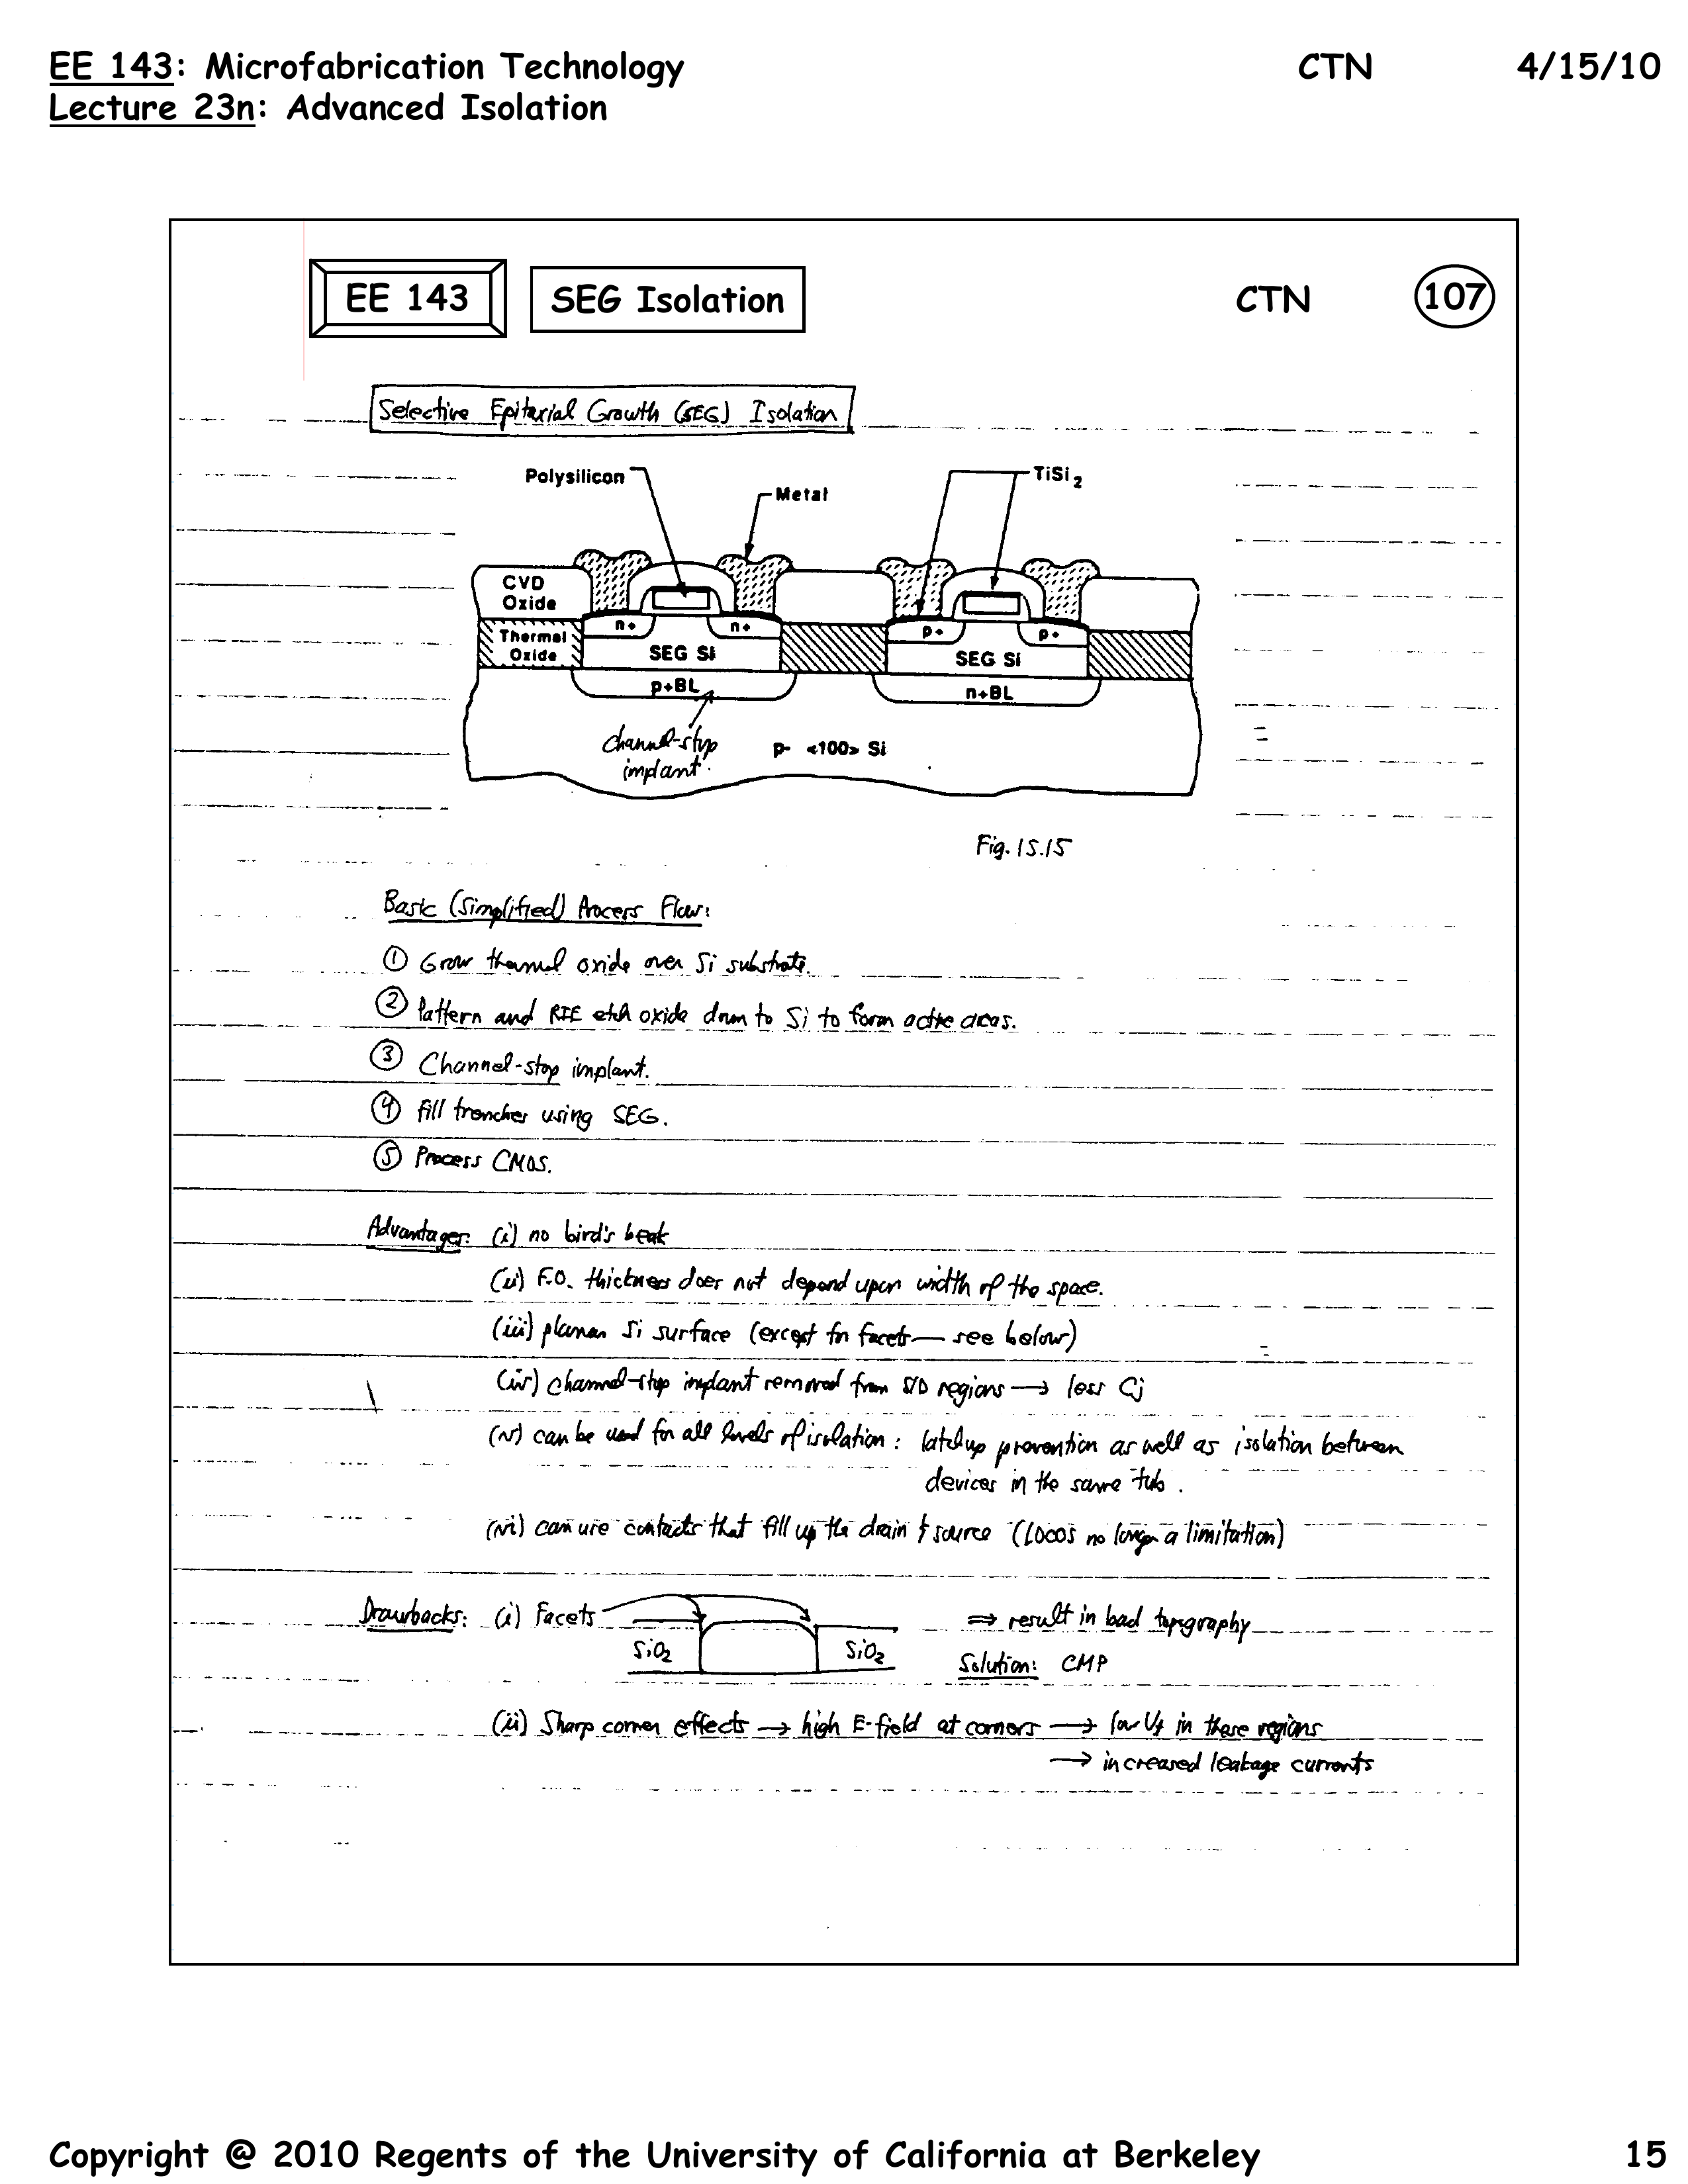 EE 143: Microfabrication Technology CTN 4/15/10
Lecture 23n: Advanced Isolation
EE 143 SEG Isolation CTN 107
Selective Epitaxial Growth (SEG) Isolation
Polysilicon Metal TiSi2
CVD
Oxide
Thermal
Oxide
n+ n+ p+ p+
SEG Si SEG Si
p+BL n+BL
channel-stop
implant.
p- <100> Si
Fig. 15.15
Basic (simplified) Process Flow:
① Grow thermal oxide over Si substrate.
② Pattern and RIE etch oxide down to Si to form active areas.
③ Channel-stop implant.
④ Fill trenches using SEG.
⑤ Process CMOS.
Advantages: (i) no bird's beak
(ii) F.O. thickness does not depend upon width of the space.
(iii) planar Si surface (except for facets — see below)
(iv) channel-stop implant removed from S/D regions → less Cj
(v) can be used for all levels of isolation: latchup prevention as well as isolation between
devices in the same tub.
(vi) can use contacts that fill up the drain & source (LOCOS no longer a limitation)
Drawbacks: (i) Facets ⇒ result in bad topography
SiO2 SiO2
Solution: CMP
(ii) Sharp corner effects → high E-field at corners → low Vt in these regions
→ increased leakage currents
Copyright @ 2010 Regents of the University of California at Berkeley 15